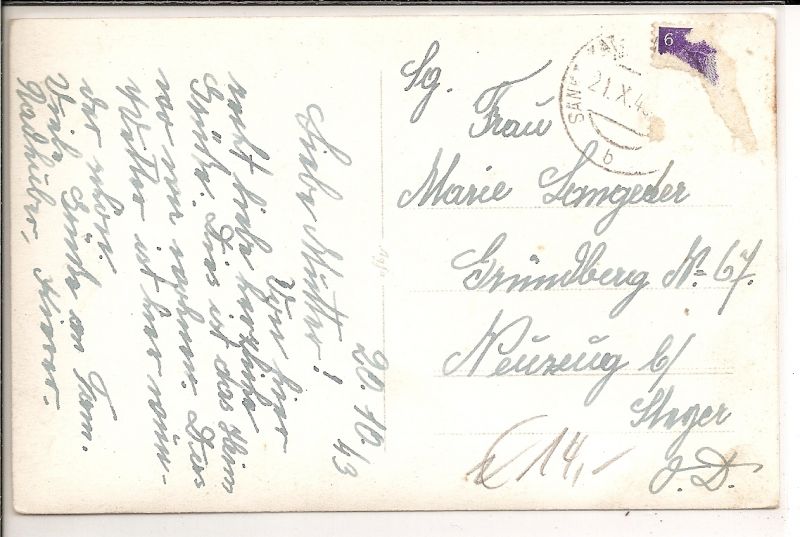 20. 10. 43
Liebe Mutter!
Von hier
recht liebe herzliche
Grüße. Dies ist das Heim
wo wir wohnen. Das
Wetter ist hier wun-
der schön.
Viele Grüße an Fam.
6
21.X.4
b
Sg.
Frau
Marie Langeder
Gründberg No 67.
Neuzeug b/
Steyr
O.D.
€ 14,-